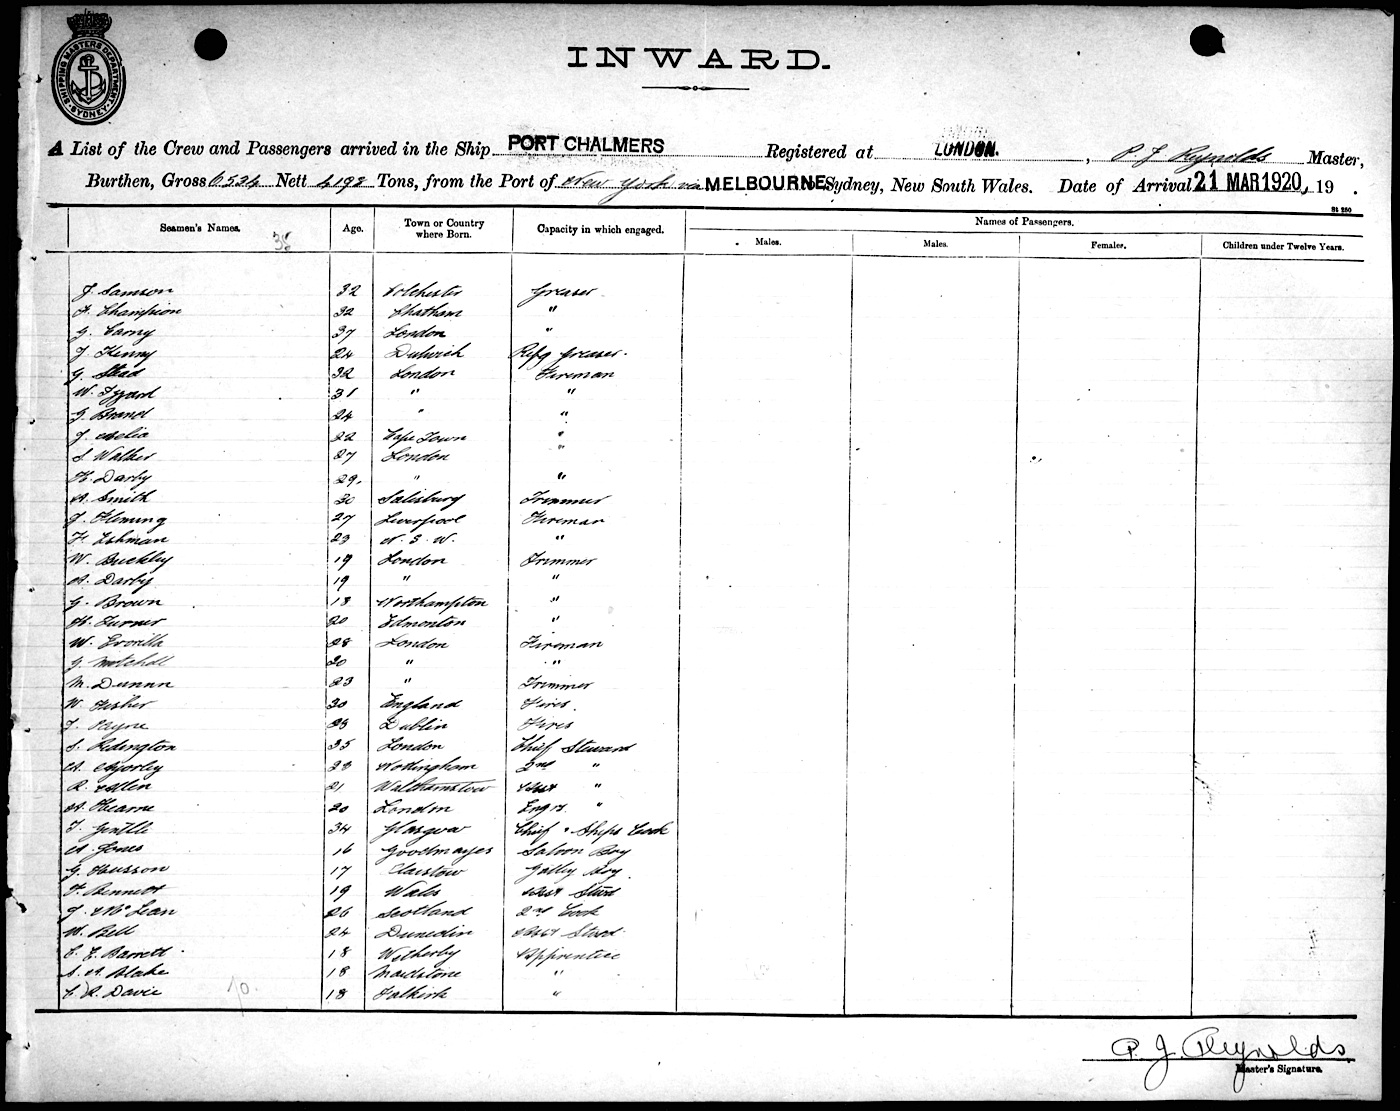 SHIPPING MASTERS DEPARTMENT
SYDNEY
INWARD.
A List of the Crew and Passengers arrived in the Ship PORT CHALMERS Registered at LONDON. , P. J. Reynolds Master,
Burthen, Gross 6534 Nett 4198 Tons, from the Port of New York via MELBOURNE Sydney, New South Wales. Date of Arrival 21 MAR 1920, 19 .
St 250
Seamen's Names. 35 Age. Town or Country where Born. Capacity in which engaged. Names of Passengers.
Males. Males. Females. Children under Twelve Years.
J. Samson 32 Colchester Greaser
F. Champion 32 Chatham "
G. Carny 37 London "
J. Kenny 24 Dulwich Refg Greaser.
G. Stead 32 London Fireman
W. Izzard 31 " "
G. Brand 24 " "
J. 22 Cape Town "
S. Walker 27 London "
K. Darby 29. " "
A. Smith 30 Salisbury Trimmer
J. Fleming 27 Liverpool Fireman
F. 23 N. S. W. "
W. Buckley 19 London Trimmer
A. Darby 19 " "
G. Brown 18 Northampton "
H. Turner 20 Edmonton "
W. 28 London Fireman
G. Mitchell 20 " "
M. Dunnn 23 " Trimmer
W. Fisher 20 England Fires.
J. Payne 23 Dublin Fires
S. Ridington 35 London Chief Steward
A. 23 Nottingham 2nd "
R. Allen 21 Walthamstow Asst "
A. Hearne 20 London Engrs "
T. Gentle 34 Glasgow Chief & Ships Cook
A. Jones 16 Goodmayes Saloon Boy
G. Husson 17 Plaistow Gally Boy.
F. Bennett 19 Wales Asst Stwd
J. McLean 26 Scotland 2nd Cook
W. Bell 24 Dunedin Asst Stwd.
C. E. Barrett 18 Wetherby Apprentice
S. A. Blake 18 Maidstone "
C. R. Davie 18 Falkirk "
P. J. Reynolds
Master's Signature.